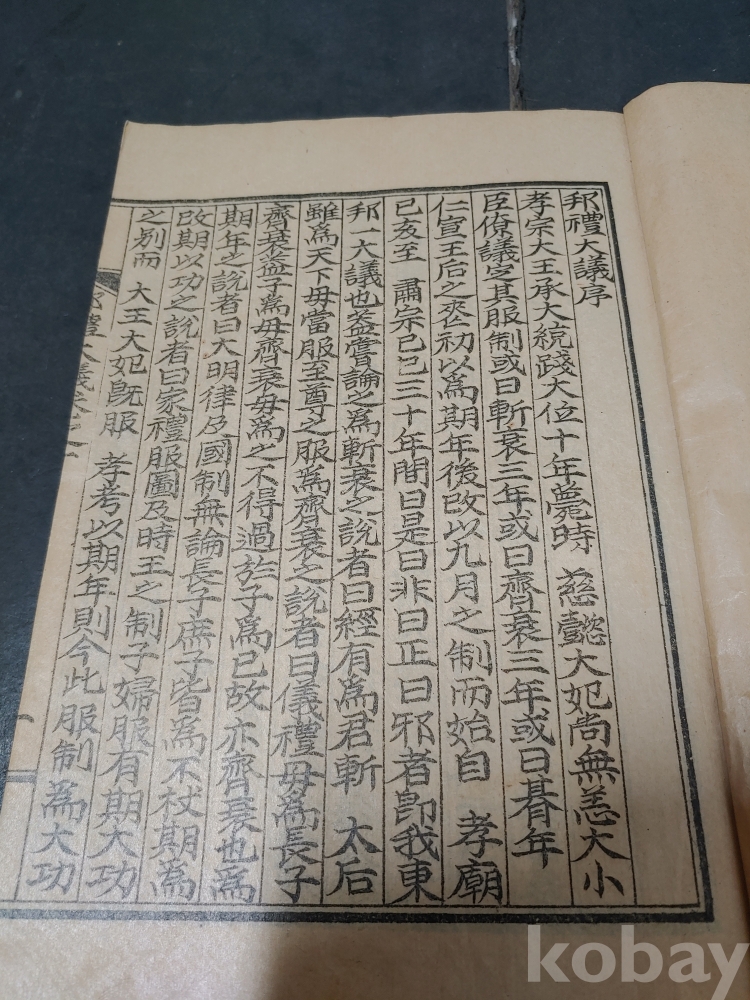 邦禮大議序
孝宗大王承大統踐大位十年薨時 慈懿大妃尙無恙大小
臣僚議定其服制或曰斬衰三年或曰齊衰三年或曰朞年
仁宣王后之喪初以爲期年後改以九月之制而始自 孝廟
己亥至 肅宗己巳三十年間曰是曰非曰正曰邪者卽我東
邦一大議也蓋嘗論之爲斬衰之說者曰經有爲君斬 太后
雖爲天下母當服至尊之服爲齊衰之說者曰儀禮母爲長子
齊衰蓋子爲母齊衰母爲之不得過於子爲己故亦齊衰也爲
期年之說者曰大明律及國制無論長子庶子皆爲不杖期爲
改期以功之說者曰家禮服圖及時王之制子婦服有期大功
之別而 大王大妃旣服 孝考以期年則今此服制爲大功
禮大議卷之一
kobay